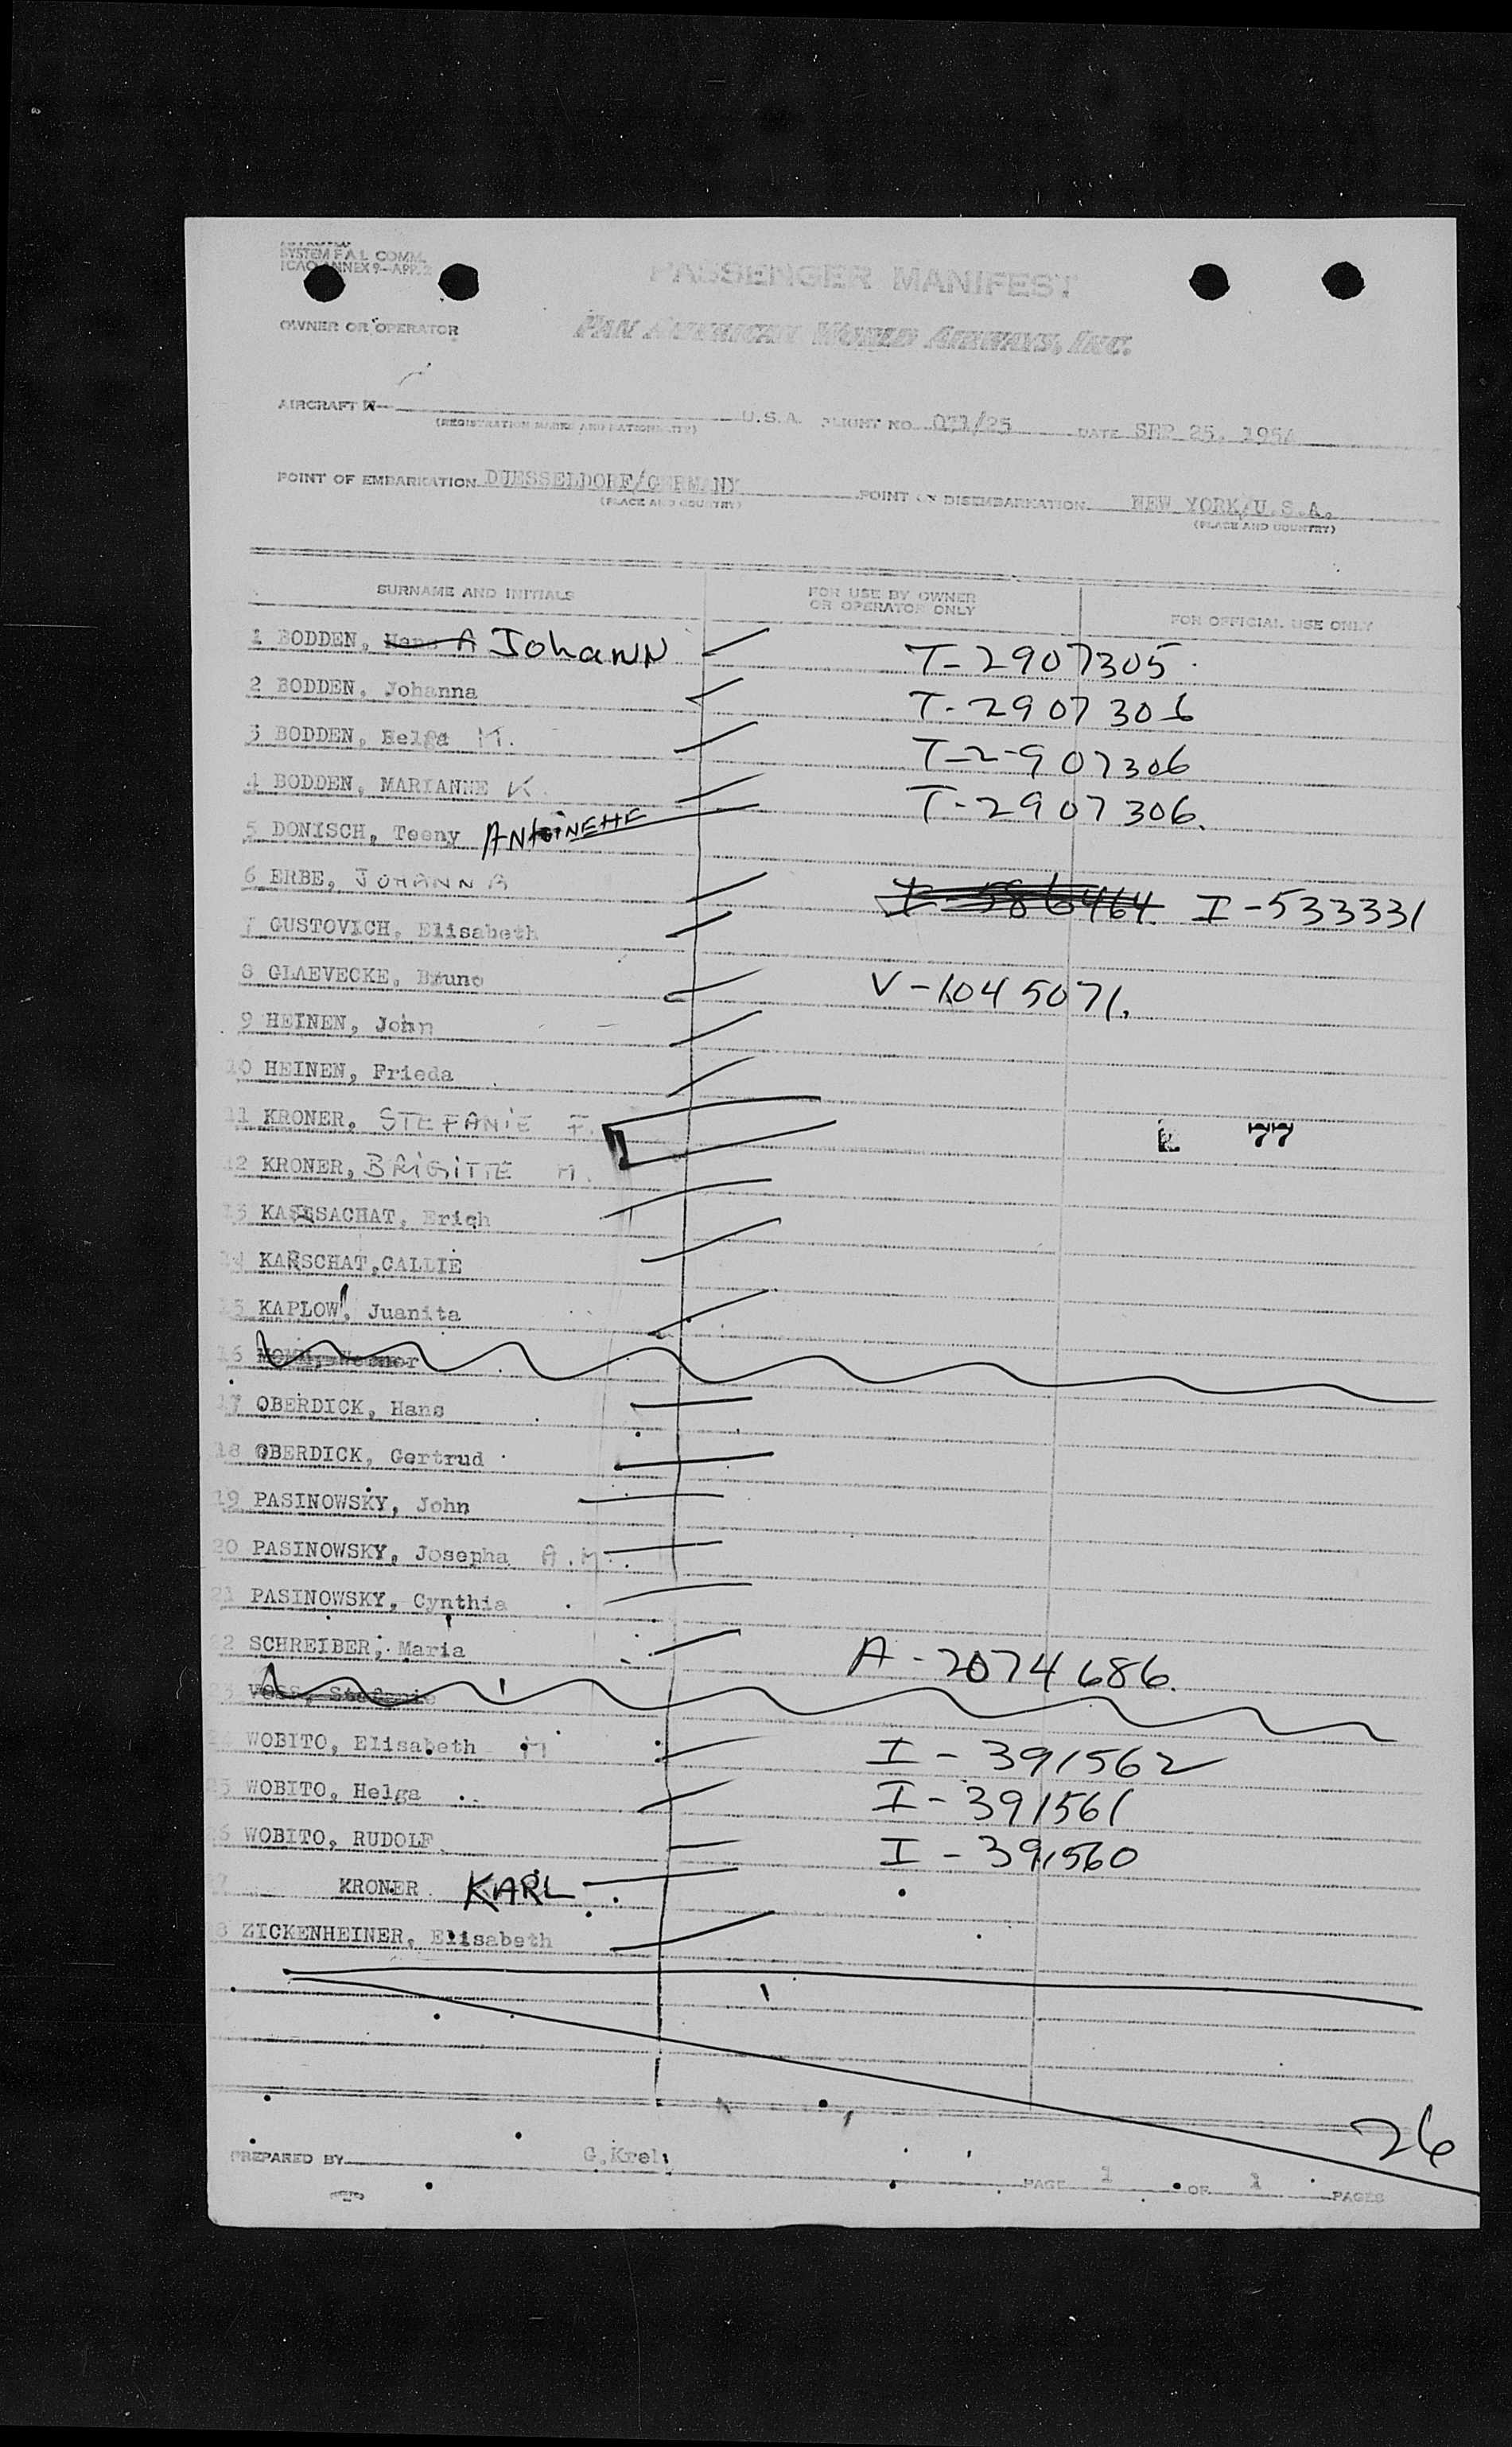 SYSTEM F A L COMM.
ICAO ANNEX 9—APP. 2
PASSENGER MANIFEST
OWNER OR OPERATOR PAN AMERICAN WORLD AIRWAYS, INC.
AIRCRAFT N U.S.A. FLIGHT NO. 071/25 DATE SEP 25, 1954
(REGISTRATION MARKS AND NATIONALITY)
POINT OF EMBARKATION DUESSELDORF/GERMANY POINT OF DISEMBARKATION NEW YORK/U.S.A.
(PLACE AND COUNTRY) (PLACE AND COUNTRY)
SURNAME AND INITIALS FOR USE BY OWNER OR OPERATOR ONLY FOR OFFICIAL USE ONLY
1 BODDEN, Hans A Johann T-2907305
2 BODDEN, Johanna T-2907306
3 BODDEN, Helga M. T-2907306
4 BODDEN, MARIANNE K. T-2907306.
5 DONISCH, Teeny ANtoiNEttE
6 ERBE, JOHANNA I-586464 I-533331
7 GUSTOVICH, Elisabeth
8 GLAEVECKE, Bruno V-1045071.
9 HEINEN, John
10 HEINEN, Frieda
11 KRONER, STEFANIE F. 77
12 KRONER, BRIGITTE M.
13 KASSACHAT, Erich
14 KARSCHAT, CALLIE
15 KAPLOW, Juanita
16 Werner
17 OBERDICK, Hans
18 OBERDICK, Gertrud
19 PASINOWSKY, John
20 PASINOWSKY, Josepha A.M.
21 PASINOWSKY, Cynthia
22 SCHREIBER, Maria A-2074686.
23 VOSS, Stefanie
24 WOBITO, Elisabeth M I-391562
25 WOBITO, Helga I-391561
26 WOBITO, RUDOLF I-391560
27 KRONER KARL
28 ZICKENHEINER, Elisabeth
26
PREPARED BY G.Krel
PAGE 1 OF 1 PAGES